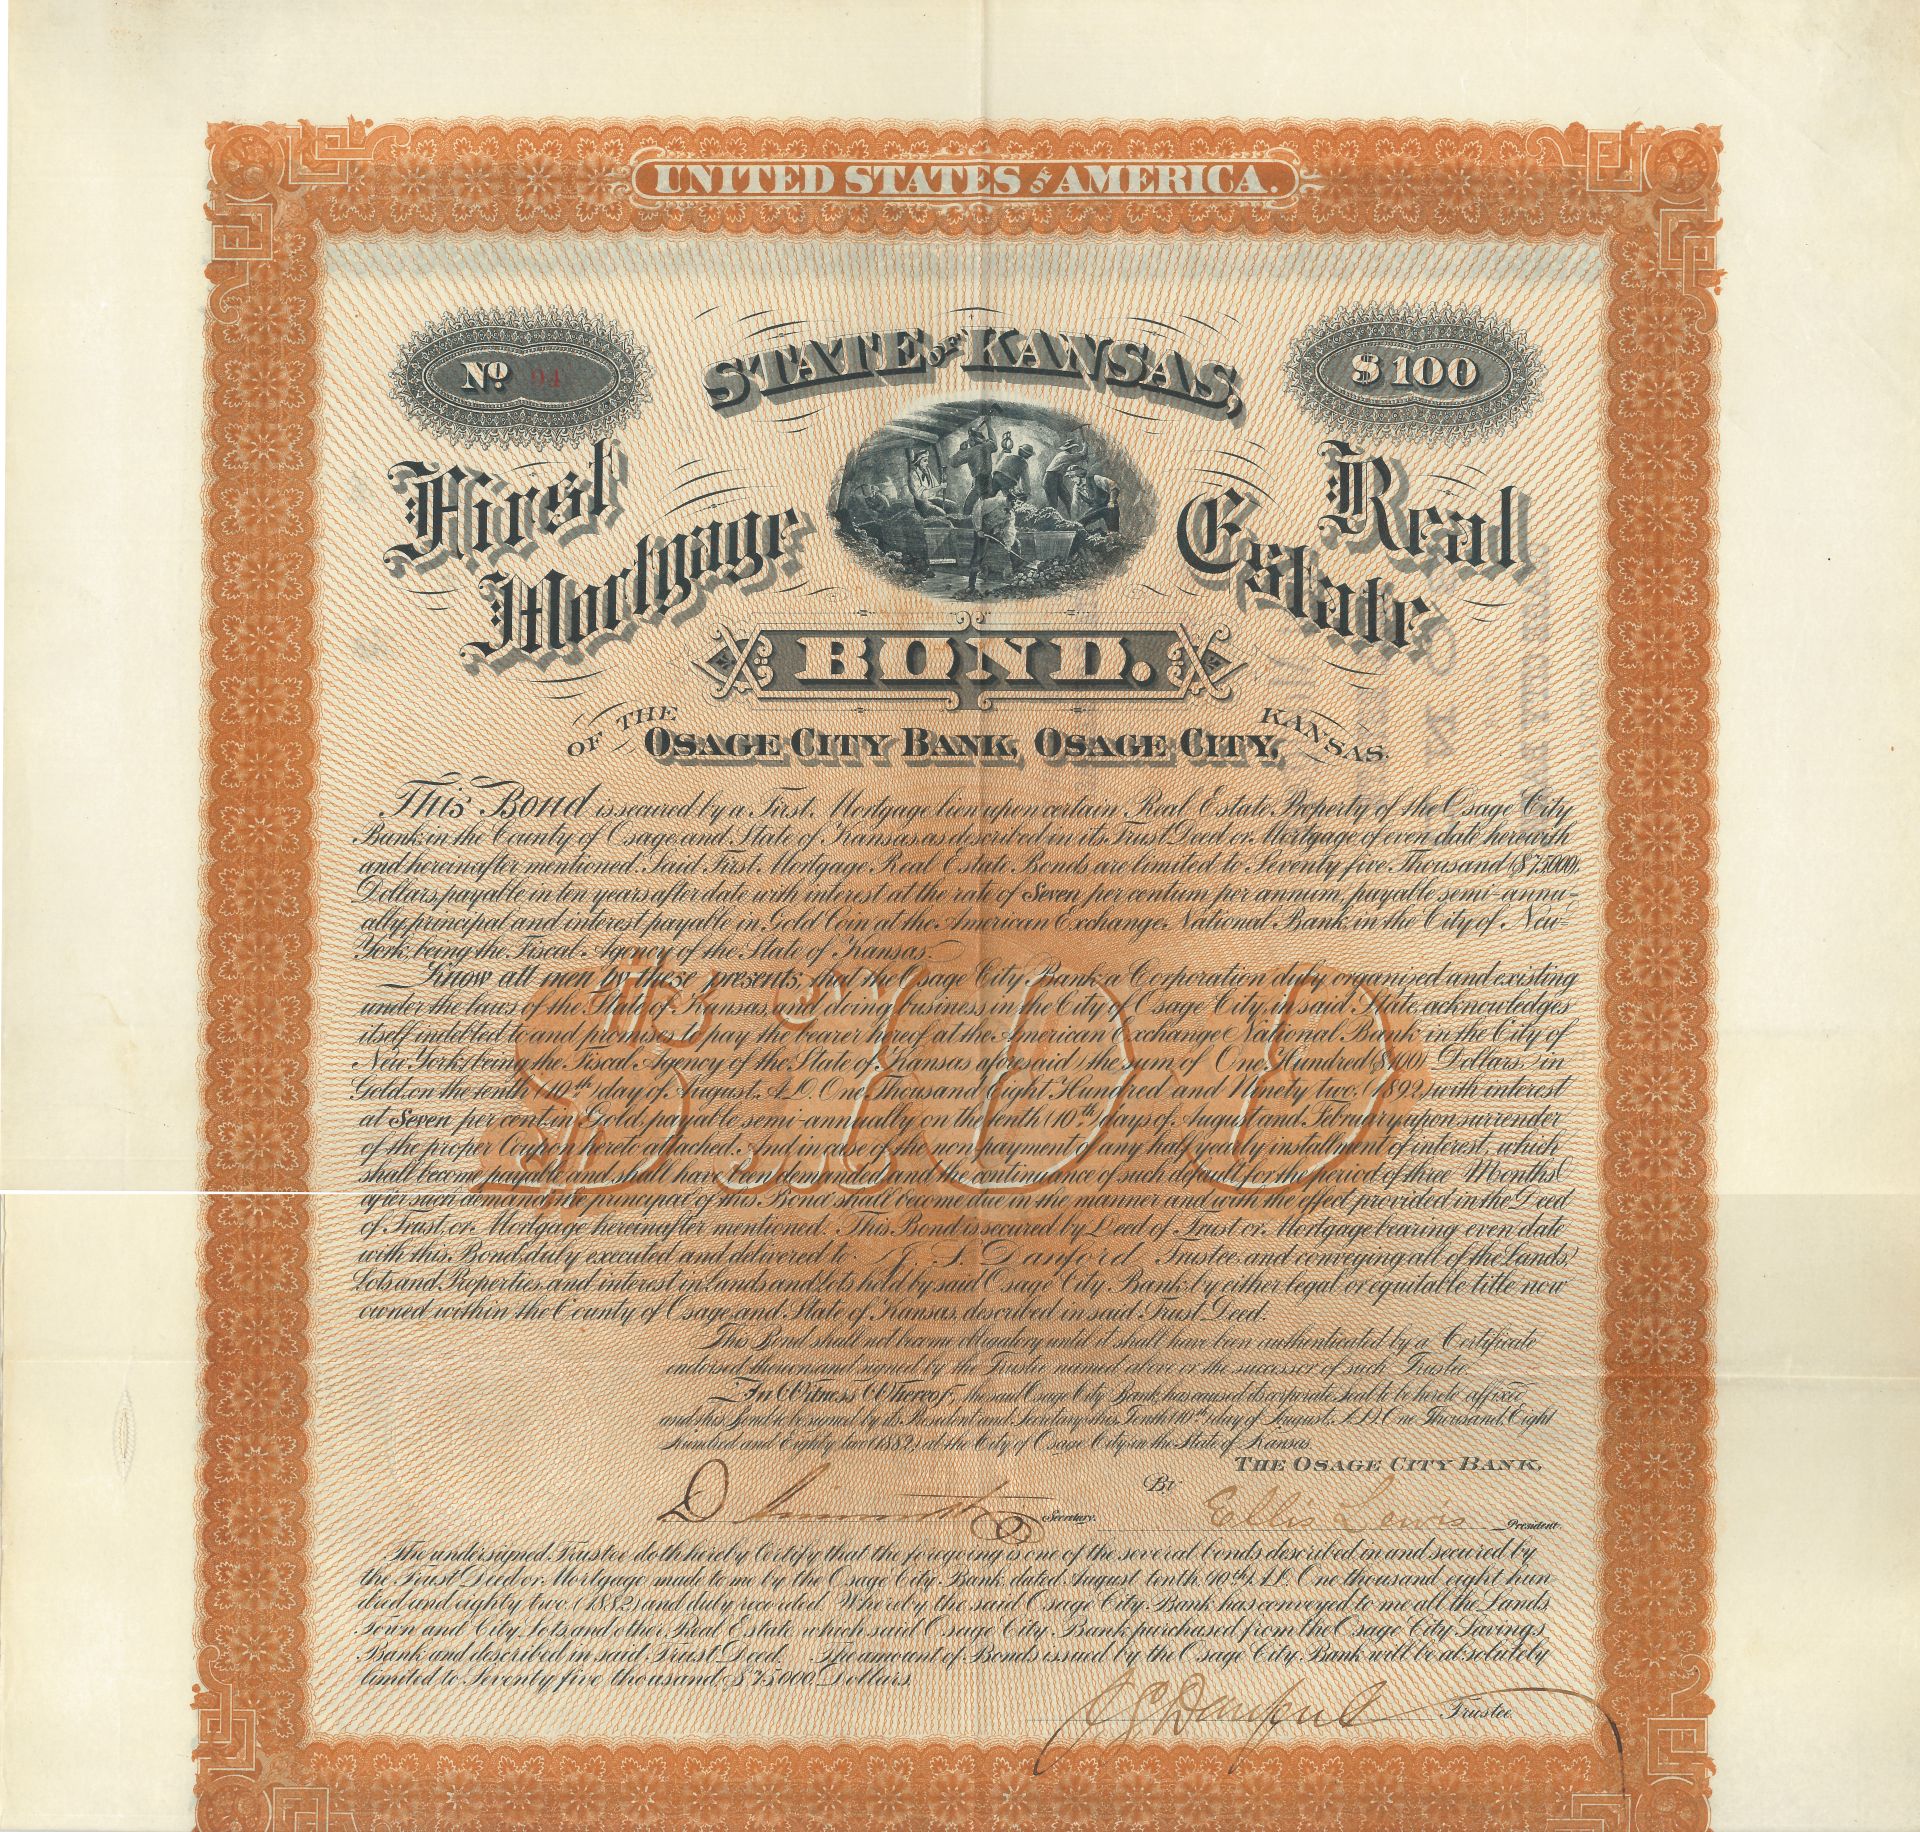 UNITED STATES OF AMERICA.
No. 94
STATE OF KANSAS,
$100
First Mortgage
Real Estate
BOND.
OF THE
OSAGE CITY BANK, OSAGE CITY,
KANSAS.
This Bond is secured by a First Mortgage lien upon certain Real Estate Property of the Osage City
Bank, in the County of Osage, and State of Kansas, as described in its Trust Deed or Mortgage of even date herewith
and hereinafter mentioned. Said First Mortgage Real Estate Bonds are limited to Seventy five Thousand ($75,000)
Dollars, payable in ten years after date with interest at the rate of Seven per centum per annum, payable semi-annu-
ally, principal and interest payable in Gold Coin at the American Exchange National Bank, in the City of New-
York, being the Fiscal Agency of the State of Kansas.
Know all men by these presents, that the Osage City Bank, a Corporation duly organized and existing
under the laws of the State of Kansas, and doing business in the City of Osage City, in said State, acknowledges
itself indebted to and promises to pay the bearer hereof at the American Exchange National Bank in the City of
New York, (being the Fiscal Agency of the State of Kansas aforesaid) the sum of One Hundred ($100) Dollars, in
Gold, on the tenth (10th) day of August, A.D. One Thousand Eight Hundred and Ninety two, (1892) with interest
at Seven per cent, in Gold, payable semi-annually on the tenth (10th) days of August and February, upon surrender
of the proper Coupon hereto attached. And in case of the non payment of any half yearly installment of interest, which
shall become payable and shall have been demanded, and the continuance of such default for the period of three Months
after such demand, the principal of this Bond shall become due in the manner and with the effect provided in the Deed
of Trust, or Mortgage hereinafter mentioned. This Bond is secured by Deed of Trust or Mortgage bearing even date
with this Bond, duly executed and delivered to J. S. Danford Trustee, and conveying all of the Lands,
Lots and Properties, and interest in Lands and Lots held by said Osage City Bank, by either legal or equitable title now
owned within the County of Osage, and State of Kansas, described in said Trust Deed.
This Bond shall not become obligatory until it shall have been authenticated by a Certificate
endorsed thereon and signed by the Trustee named above or the successor of such Trustee.
In Witness Whereof, the said Osage City Bank, has caused its corporate seal to be hereto affixed
and this Bond to be signed by its President and Secretary, this Tenth (10th) day of August, A.D. One Thousand, Eight
Hundred and Eighty two (1882) at the City of Osage City, in the State of Kansas.
THE OSAGE CITY BANK,
Secretary.
By Ellis Lewis President.
The undersigned Trustee doth hereby Certify that the foregoing is one of the several bonds described in and secured by
the Trust Deed or Mortgage made to me by the Osage City Bank, dated August tenth, (10th) A.D. One thousand eight hun-
dred and eighty two, (1882) and duly recorded. Whereby the said Osage City Bank has conveyed to me all the Lands,
Town and City Lots, and other Real Estate which said Osage City Bank purchased from the Osage City Savings
Bank and described in said Trust Deed. The amount of Bonds issued by the Osage City Bank will be absolutely
limited to Seventy five thousand, $75,000 Dollars.
J S Danford Trustee.